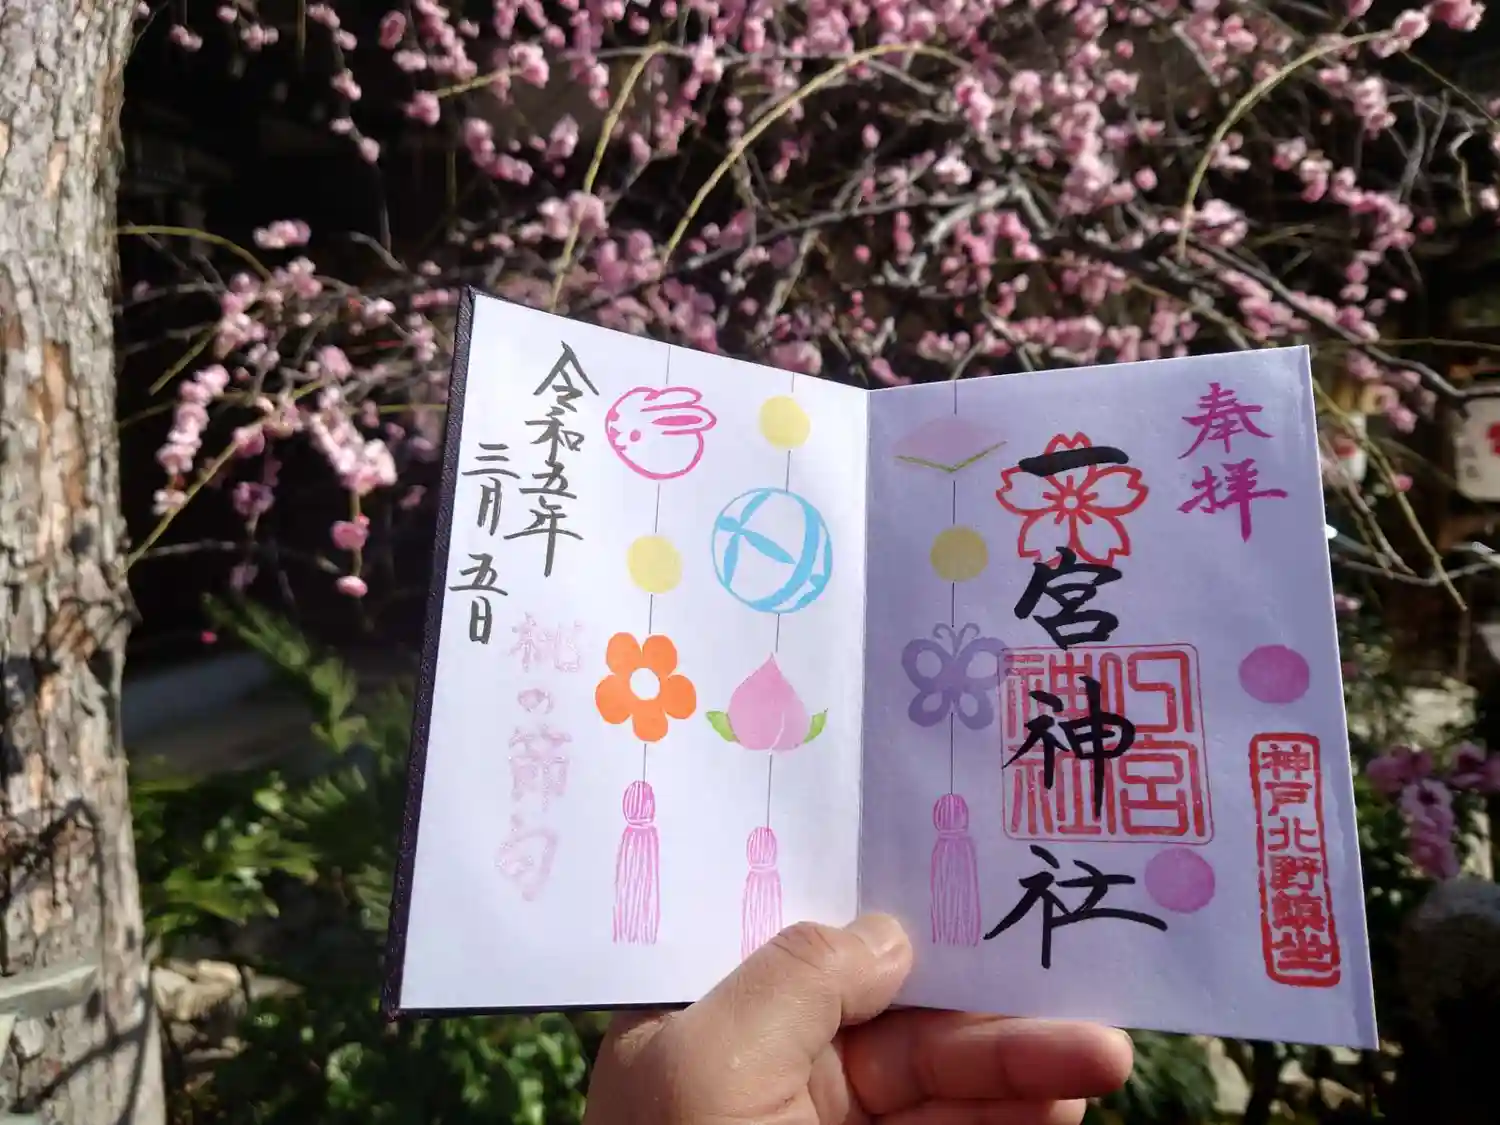 奉拝
神戸北野鎮坐
一宮神社
一宮神社
桃の節句
令和五年
三月五日